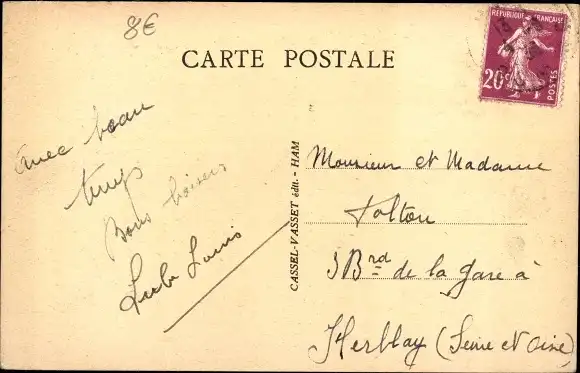 8€
CARTE POSTALE
REPUBLIQUE FRANÇAISE
20c
POSTES
Avec beau
temps
Bons baisers
Louis
CASSEL-VASSET édit. - HAM
Monsieur et Madame
Tolton
3 Brd de la gare à
Herblay (Seine et Oise)